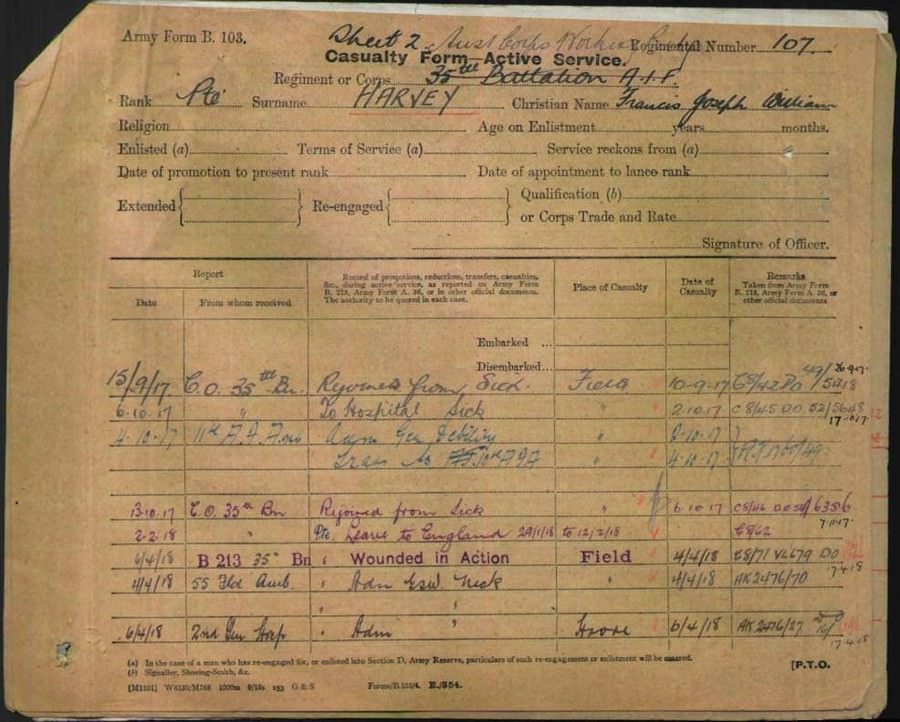 Army Form B. 103. Sheet 2 Aust Corps Regimental Number 107
Casualty Form—Active Service.
Regiment or Corps 35th Battalion A.I.F.
Rank Pte Surname HARVEY Christian Name Francis Joseph William
Religion Age on Enlistment years months.
Enlisted (a) Terms of Service (a) Service reckons from (a)
Date of promotion to present rank Date of appointment to lance rank
Extended Re-engaged Qualification (b)
or Corps Trade and Rate
Signature of Officer.
Report Record of promotions, reductions, transfers, casualties, &c., during active service, as reported on Army Form B. 213, Army Form A. 36, or in other official documents. The authority to be quoted in each case. Place of Casualty Date of Casualty Remarks Taken from Army Form B. 213, Army Form A. 36, or other official documents
Date From whom received
Embarked ...
Disembarked ...
15/9/17 C.O. 35th Bn. Rejoined from Sick. Field 10-9-17
6.10.17 " To Hospital Sick " 2.10.17 C8/45 DO 52/5648 17.10.17
4-10-17 11th A.F.Amb Gen Debility " 2-10-17
Trans to " 4.10.17
13.10.17 C.O. 35th Bn Rejoined from Sick " 6.10.17 C8/46 6356
2.2.18 " Pte. Leave to England 29/1/18 to 12/2/18 C8/62
6/4/18 B 213 35 Bn " Wounded in Action Field 4/4/18 C8/71 VL679 DO 17.4.18
4/4/18 55 Fld Amb. " Adm GSW Neck " 4/4/18 AK2476/70
" "
6/4/18 2nd Gen Hosp " Adm " Havre 6/4/18 AK2476/27 17.4.18
(a) In the case of a man who has re-engaged for, or enlisted into Section D, Army Reserve, particulars of such re-engagement or enlistment will be entered.
(b) Signaller, Shoeing-Smith, &c. [P.T.O.
G & S Forms/B.103/4. E./354.